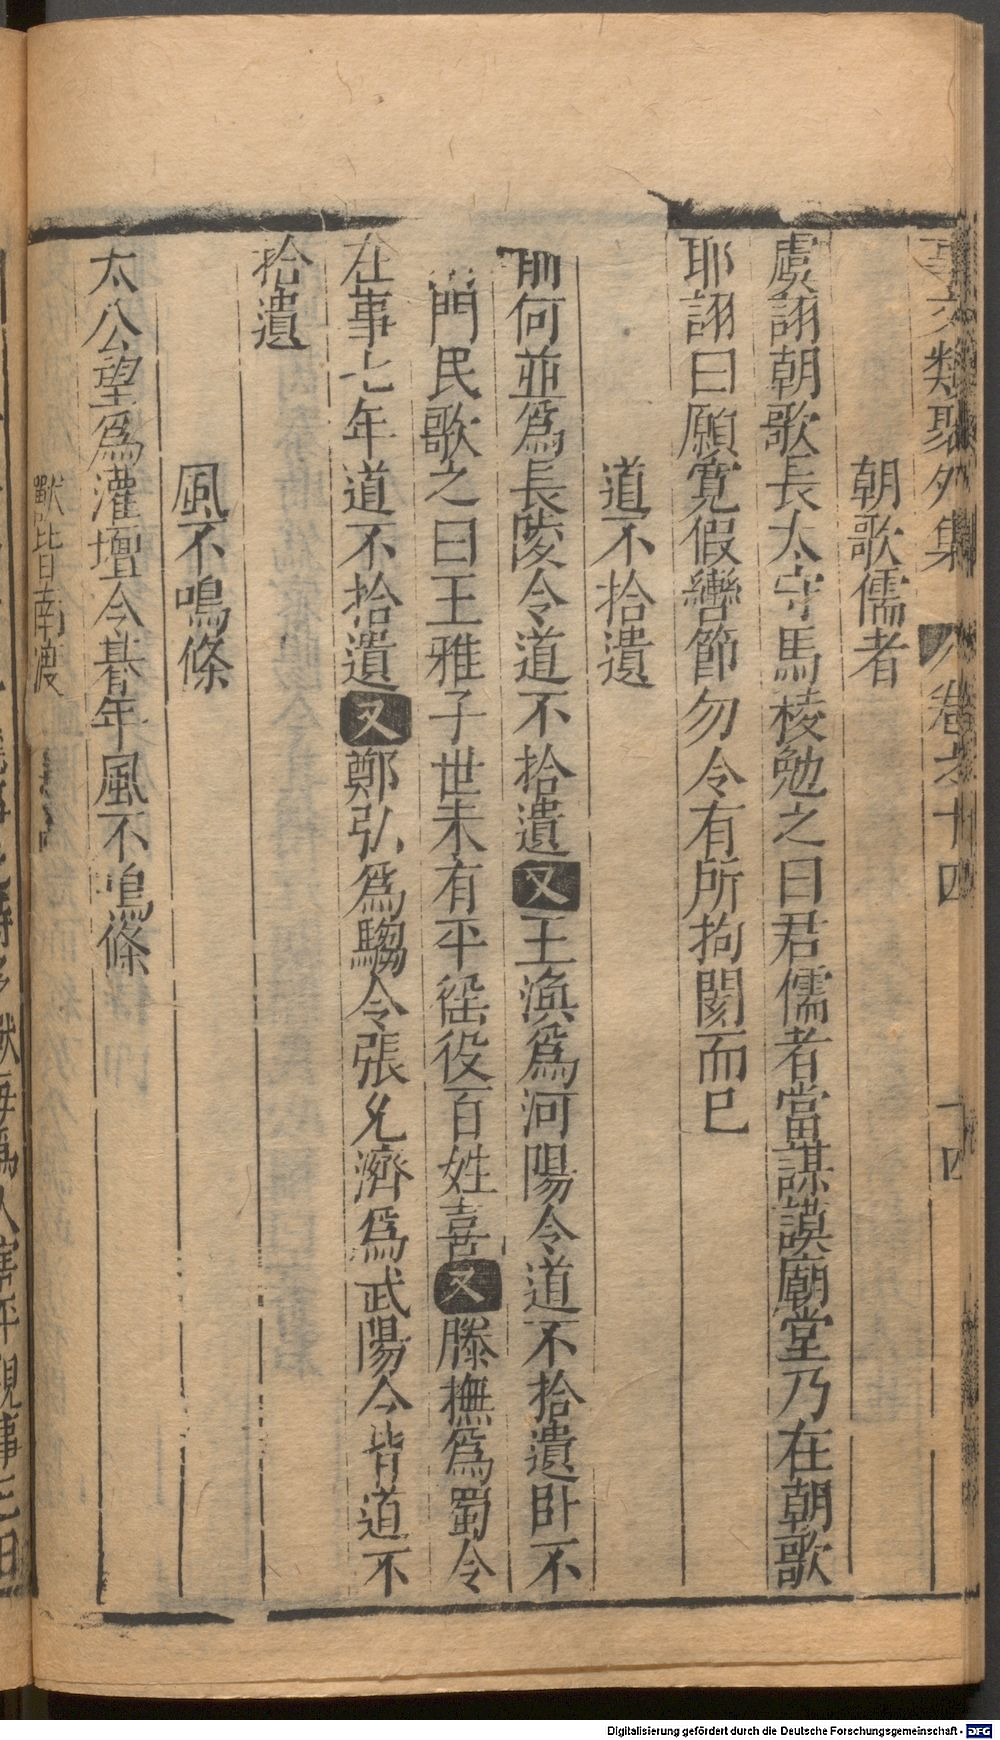 事文類聚外集 卷之十四 十四
朝歌儒者
虞詡朝歌長太守馬稜勉之曰君儒者當謀謨廟堂乃在朝歌
耶詡曰願寬假轡節勿令有所拘閡而已
道不拾遺
前何並爲長陵令道不拾遺又王渙爲河陽令道不拾遺卧不
閉門民歌之曰王雅子世未有平徭役百姓喜又滕撫爲蜀令
在事七年道不拾遺又鄭弘爲騶令張允濟爲武陽令皆道不
拾遺
風不鳴條
太公望爲灌壇令朞年風不鳴條
獸皆南渡
Digitalisierung gefördert durch die Deutsche Forschungsgemeinschaft - DFG